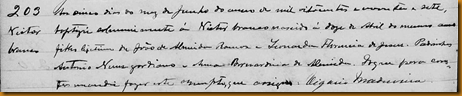 203 Aos cinco dias do mez de Junho do anno de mil oitocentos e noventa e sete,
Nestor baptizei solemnemente a Nestor branco nascido á doze de Abril do mesmo anno
branco filho legitimo de João de Almeida Ramos e Leonarda Florencia de Jesus. Padrinhos
Antonio Nunes e Anna Bernardina de Almeida. E para
mandei fazer este que assigno. Vigario